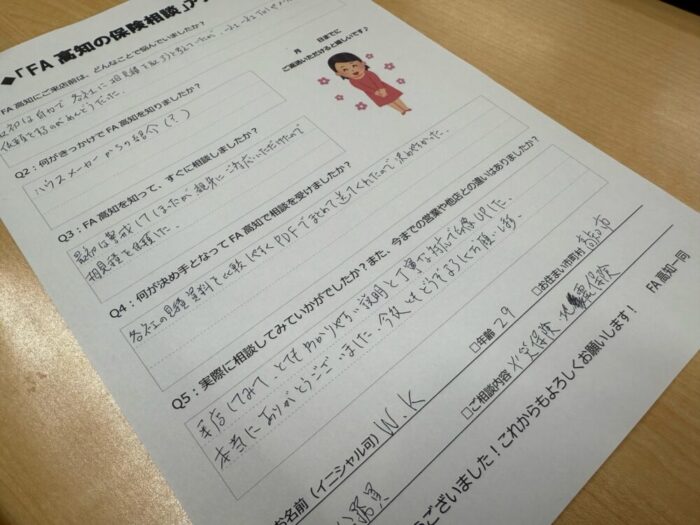 ◆「FA 高知の保険相談」ア
FA 高知にご来店前は、どんなことで悩んでいましたか?
最初は自力で各会社に相見積を取ろうと考えてたが
Q2:何がきっかけでFA 高知を知りましたか?
ハウスメーカーからの紹介(?)
月 日までに
ご返送いただけると嬉しいです♪
Q3:FA 高知を知って、すぐに相談しましたか?
最初は警戒してしまったが、親身にご対応いただけたので
相見積を依頼した。
Q4:何が決め手となって FA 高知で相談を受けましたか?
各会社の見積資料を比較しやすくPDFでまとめて送ってくれたので決めやすかった。
Q5:実際に相談してみていかがでしたか?また、今までの営業や他店との違いはありましたか?
来店してみて、とてもわかりやすい説明と丁寧な対応で印象UPした。
本当にありがとうございました。今後ともどうぞよろしくお願いします。
お名前(イニシャル可) W.K
□年齢 29
□お住まい市町村 高知市
□ご相談内容 火災保険・地震保険
ございました!これからもよろしくお願いします!
FA 高知一同